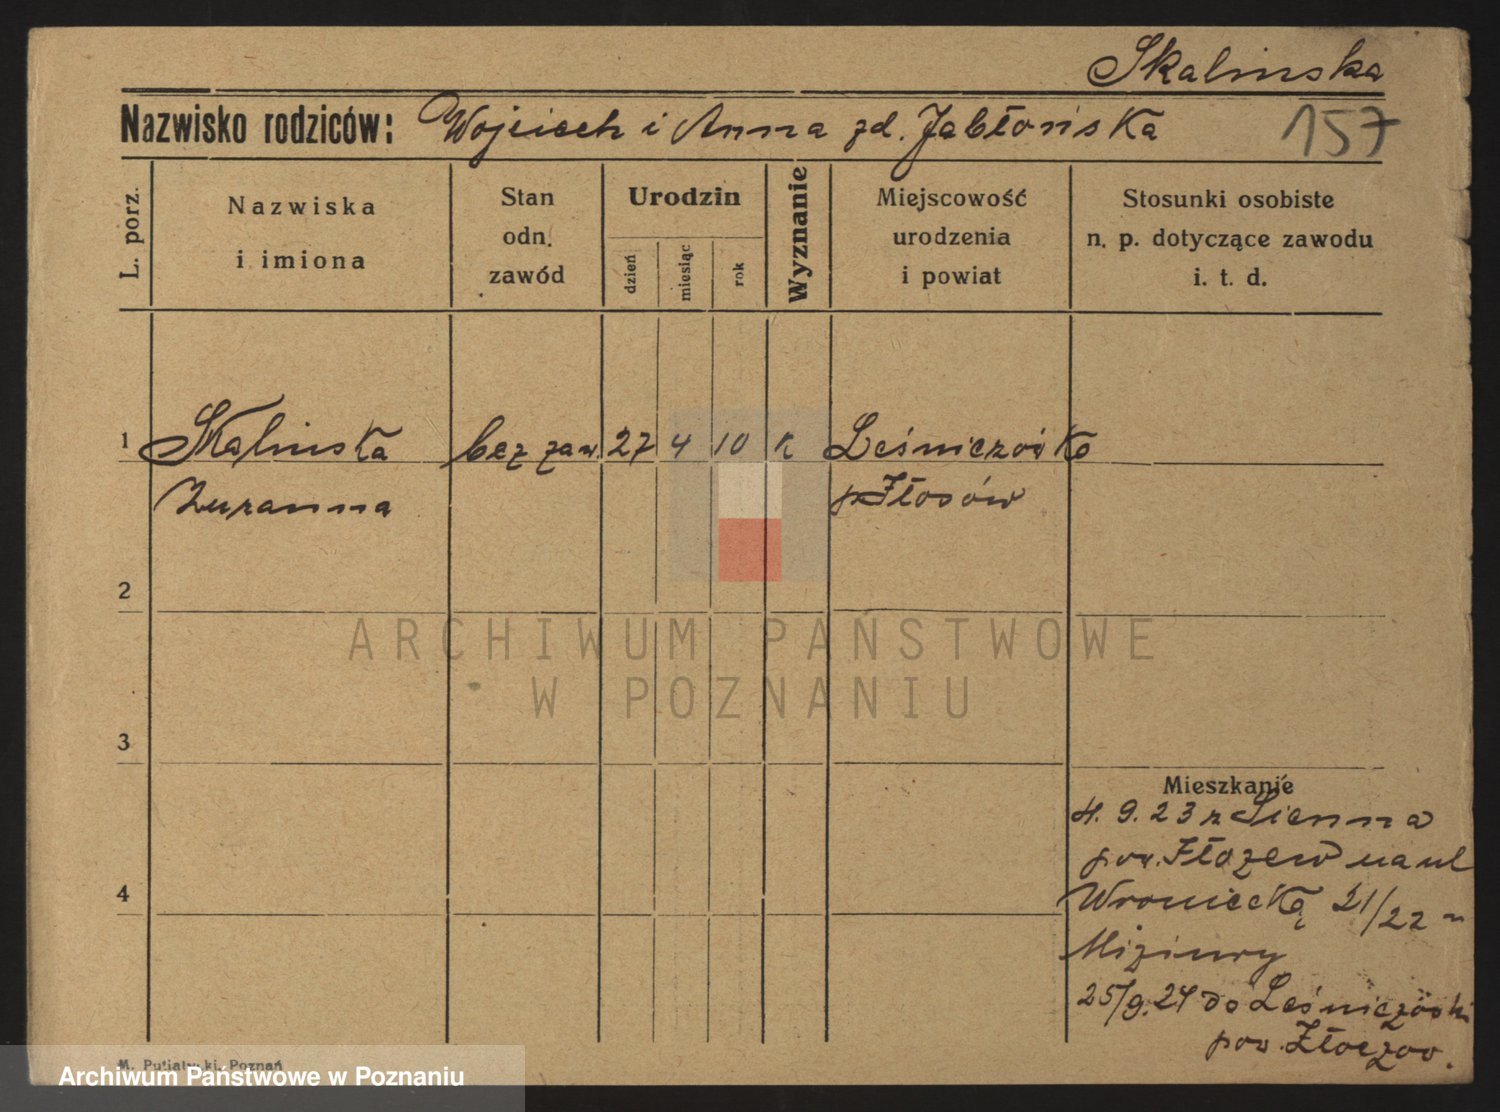 Skalinska
Nazwisko rodziców: Wojciech i Anna zd. Jabłońska
157
L. porz.
Nazwiska
i imiona
Stan
odn.
zawód
Urodzin
dzień
miesiąc
rok
Wyznanie
Miejscowość
urodzenia
i powiat
Stosunki osobiste
n. p. dotyczące zawodu
i. t. d.
1 Skalinska bez zaw. 27 4 10 k Leśniczówka
Zuzanna
2
ARCHIWUM PAŃSTWOWE
W POZNANIU
3
Mieszkanie
4. 9. 23 z Sienna
pow. na ul
4
Wroniecką 21/22
Miziury
25/9. 24 do Leśniczówki
pow. Złoczow.
M. Putiatycki, Poznań
Archiwum Państwowe w Poznaniu